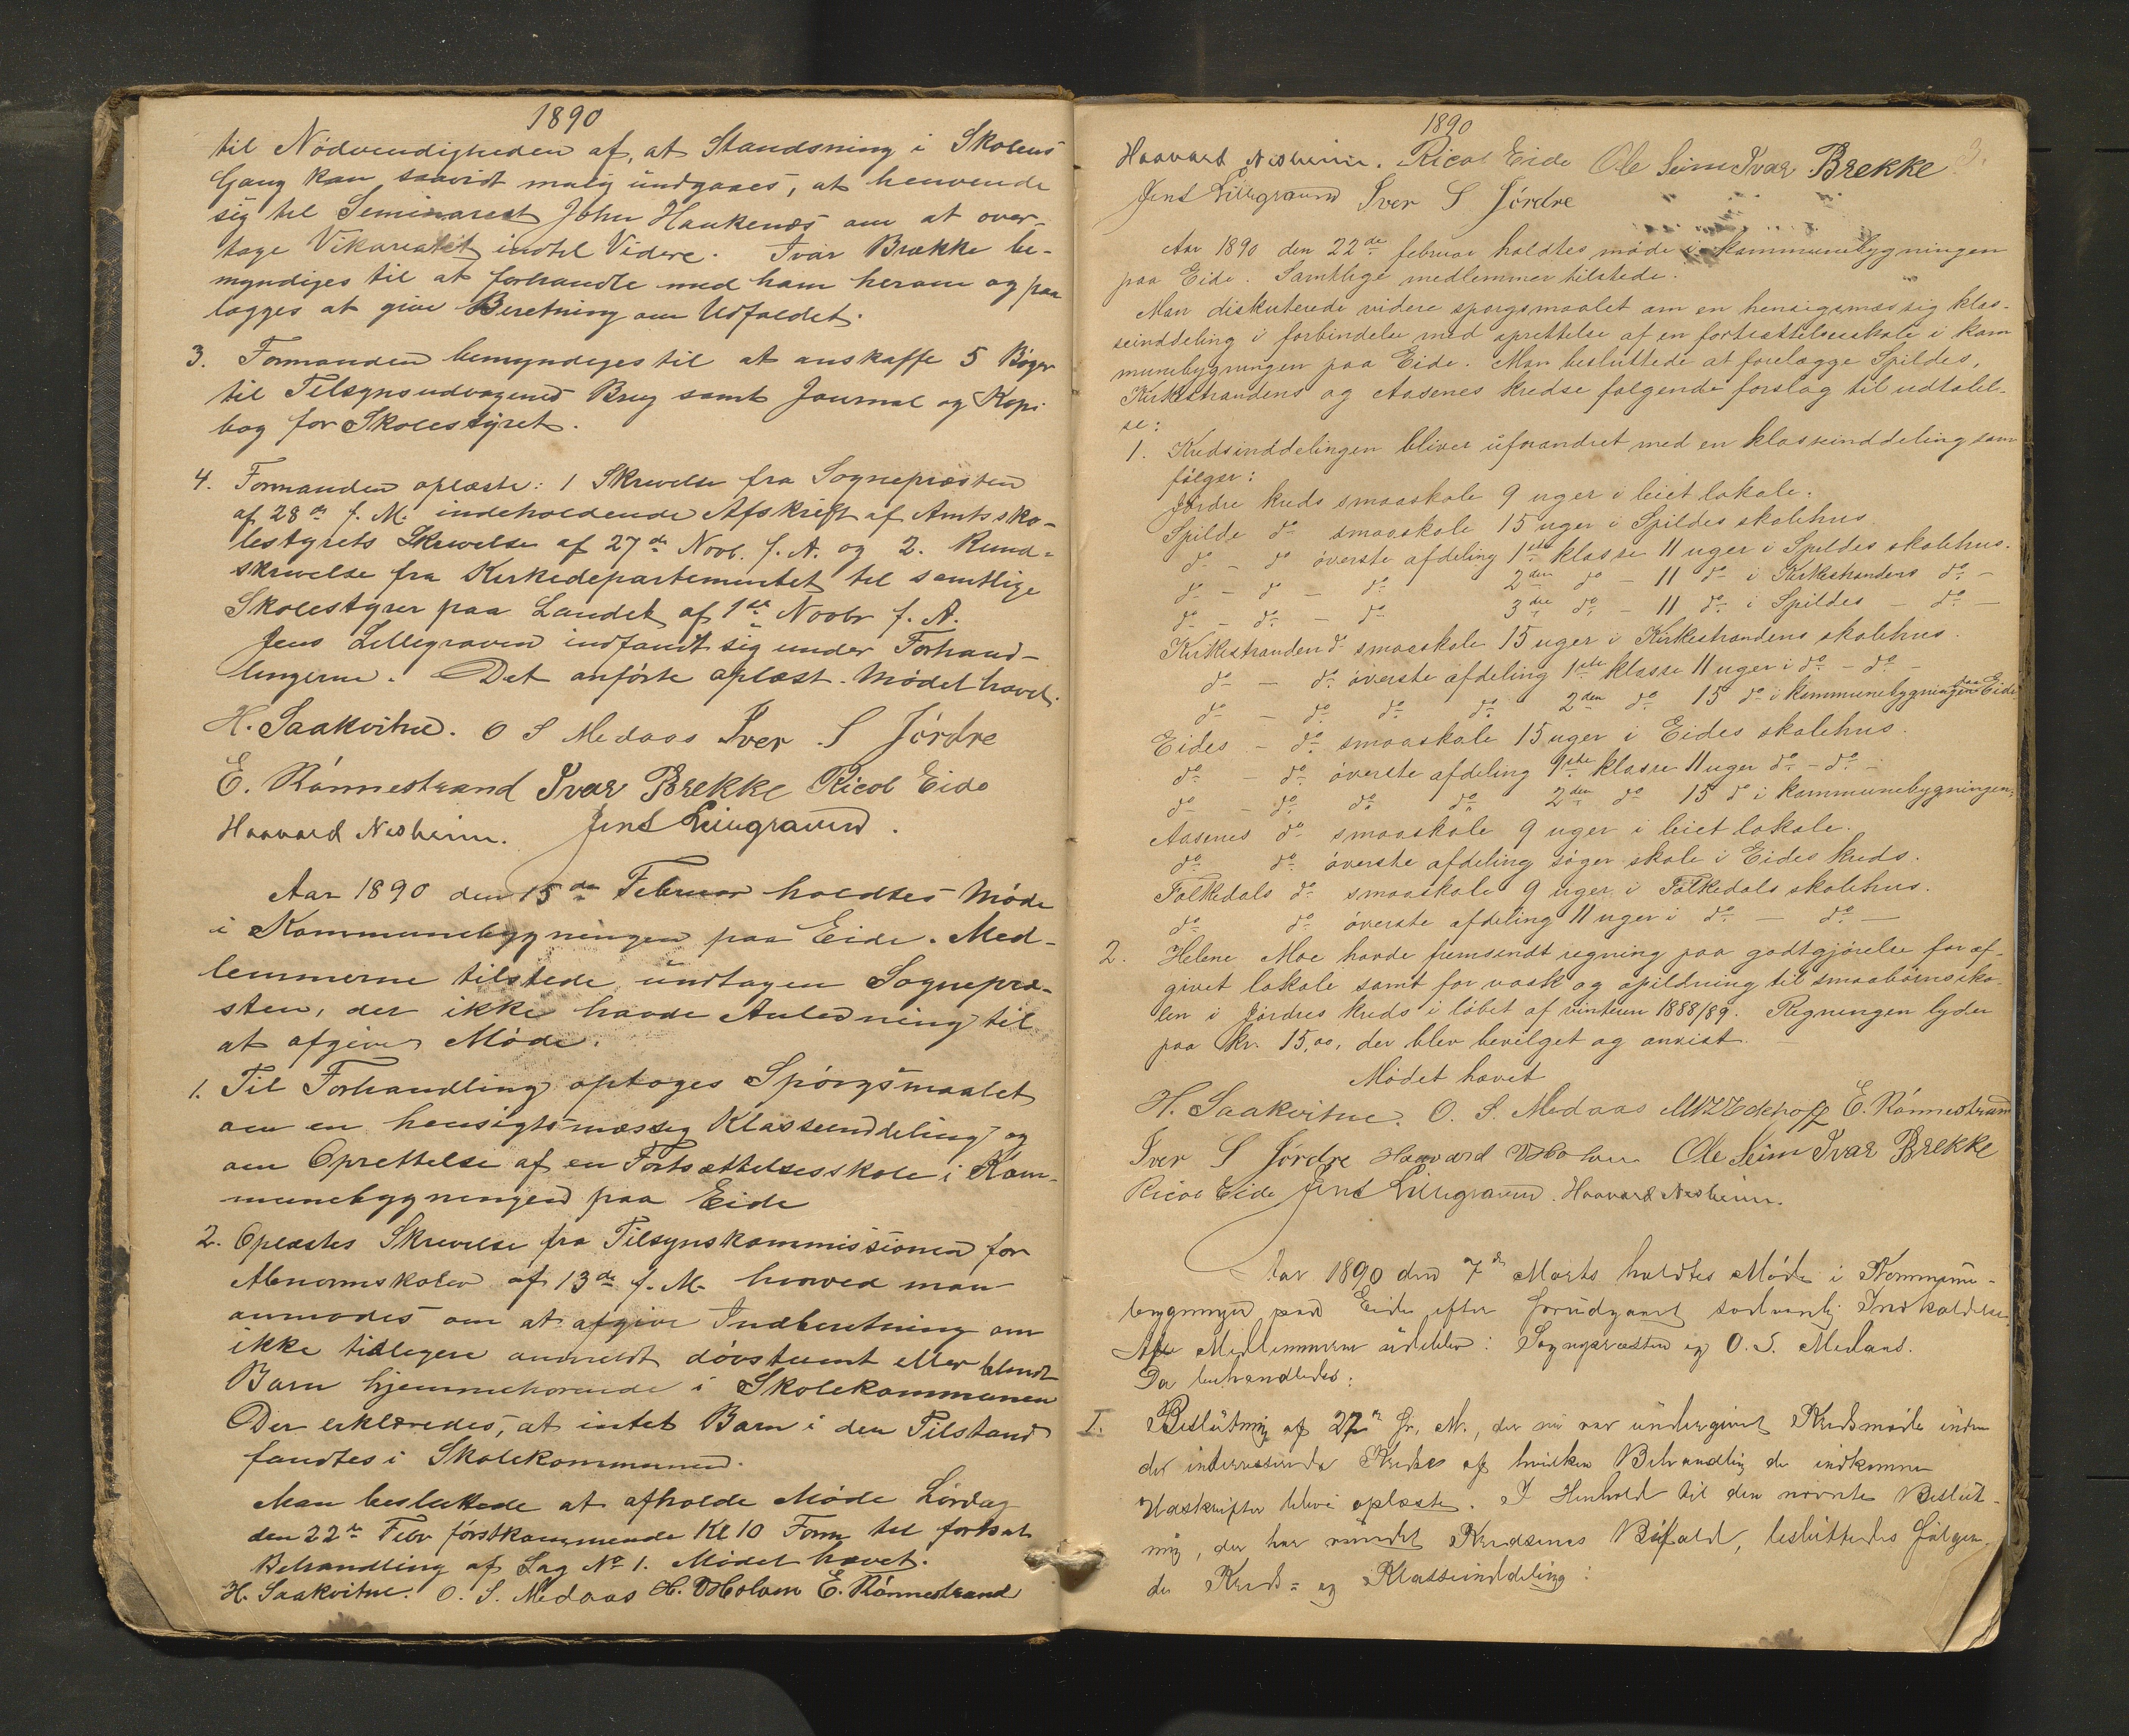 1890
til Nödvendigheden af, at Standsning i Skolens
Gang kan saavidt mulig undgaaes, at henvende
sig til Seminarist John Haukenæs om at over-
tage Vikariatet indtil Videre. Ivar Brække be-
myndiges til at forhandle med ham herom og paa
lægges at give Beretning om Udfaldet.
3. Formanden bemyndiges til at anskaffe 5 Bøger
til Tilsynsudvagenes Brug samt Journal og Kopi
bog for Skolestyret.
4. Formanden oplæste: 1 Skrivelse fra Sognepræsten
af 28de f. M. indeholdende Afskrift af Amtssko-
lestyrets Skrivelse af 27de Novb. f. A. og 2. Rund-
skrivelse fra Kirkedepartementet til samtlige
Skolestyrer paa Landet af 1ste Novbr f. A.
Jens Lillegraven indfandt sig under Forhand-
lingerne. Det anförte oplæst. Mödet hævet.
H. Saakvitne. O S Medaas Iver S Jördre
E. Rönnestrand Ivar Brekke Ricol Eide
Haavard Nesheim. Jens Lillegraven.
Aar 1890 den 15de Februar holdtes Möde
i Kommunebygningen paa Eide. Med-
lemmerne tilstede undtagen Sognepræ-
sten, der ikke havde Anledning til
at afgive Möde.
1. Til Forhandling optoges Spörgsmaalet
om en hensigtsmæssig Klasseinddeling og
om Oprettelse af en Fortsættelsesskole i Kom-
munebygningen paa Eide
2. Oplæstes Skrivelse fra Tilsynskommissionen for
Abnormskolen af 13de f. M. hvorved man
anmodes om at afgive Indberetning om
ikke tidligere anmeldt dövstumt eller blindt
Barn hjemmehörende i Skolekommunen
Der erklæredes, at intet Barn i den Tilstand
fandtes i Skolekommunen.
Man besluttede at afholde Möde Lördag
den 22de Febr förstkommende Kl 10 Form til fortsat
Behandling af Sag No 1. Mödet hævet.
H. Saakvitne. O. S. Medaas H. Holven E. Rönnestrand
1890
3.
Haavard Nesheim. Ricol Eide Ole Seim Ivar Brekke
Jens Lillegraven Iver S Jördre
Aar 1890 den 22de februar holdtes möde i kommunebygningen
paa Eide. Samtlige medlemmer tilstede.
Man diskuterede videre sporgsmaalet om en hensigsmæssig klas-
seinddeling i forbindelse med oprettelse af en fortsættelsesskole i kom
munebygningen paa Eide. Man besluttede at forelægge Spildes,
Kirkestrandens og Aasenes kredse følgende forslag til udtalel-
se:
1. Kredsinddelingen bliver uforandret med en klasseinddeling som
følger:
Jördre kreds smaaskole 9 uger i leiet lokale.
Spilde do smaaskole 15 uger i Spildes skolehus.
do - do överste afdeling 1ste klasse 11 uger i Spildes skolehus.
do - do - do 2den do - 11 do i Kirkestrandens do -
do - do - do 3die do - 11 do i Spildes - do -
Kirkestranden do smaaskole 15 uger i Kirkestrandens skolehus.
do - do överste afdeling 1ste klasse 11 uger i do - do -
do - do do do 2den do 15 do i kommunebygningen paa Eide
Eides - do smaaskole 15 uger i Eides skolehus.
do - do överste afdeling 1ste klasse 11 uger do - do -
do - do do do 2den do 15 do i kommunebygningen.
Aasenes do smaaskole 9 uger i leiet lokale.
do do överste afdeling söger skole i Eides kreds.
Folkedals do smaaskole 9 uger i Folkedals skolehus.
do do överste afdeling 11 uger i do - do -
2. Helene Moe havde fremsendt regning paa godtgjörelse for af-
givet lokale samt for vask og opildning til smaabörnsko-
len i Jördres kreds i löbet af vinteren 1888/89. Regningen lyder
paa kr. 15,00, der blev bevilget og anvist.
Mödet hævet
H. Saakvitne. O. S. Medaas E. Rönnestrand
Iver S Jördre Haavard Holven Ole Seim Ivar Brekke
Ricol Eide Jens Lillegraven. Haavard Nesheim.
Aar 1890 den 7de Marts holdtes Möde i Kommune-
bygningen paa Eide efter forudgaaet sedvanlig Indkaldelse.
Af Medlemmerne udeblev: Sognepræsten og O. S. Medaas.
Da behandledes:
I. Beslutning af 22de fr. M., der nu var undergivet Kredsmöde inden
de interesserede Kredse af hvilken Behandling de indkomne
Udskrifter blive oplæste. I Henhold til den nævnte Beslut-
ning, der har vundet Kredsenes Bifald, besluttedes fölgen-
de Kreds- og Klasseinddeling: